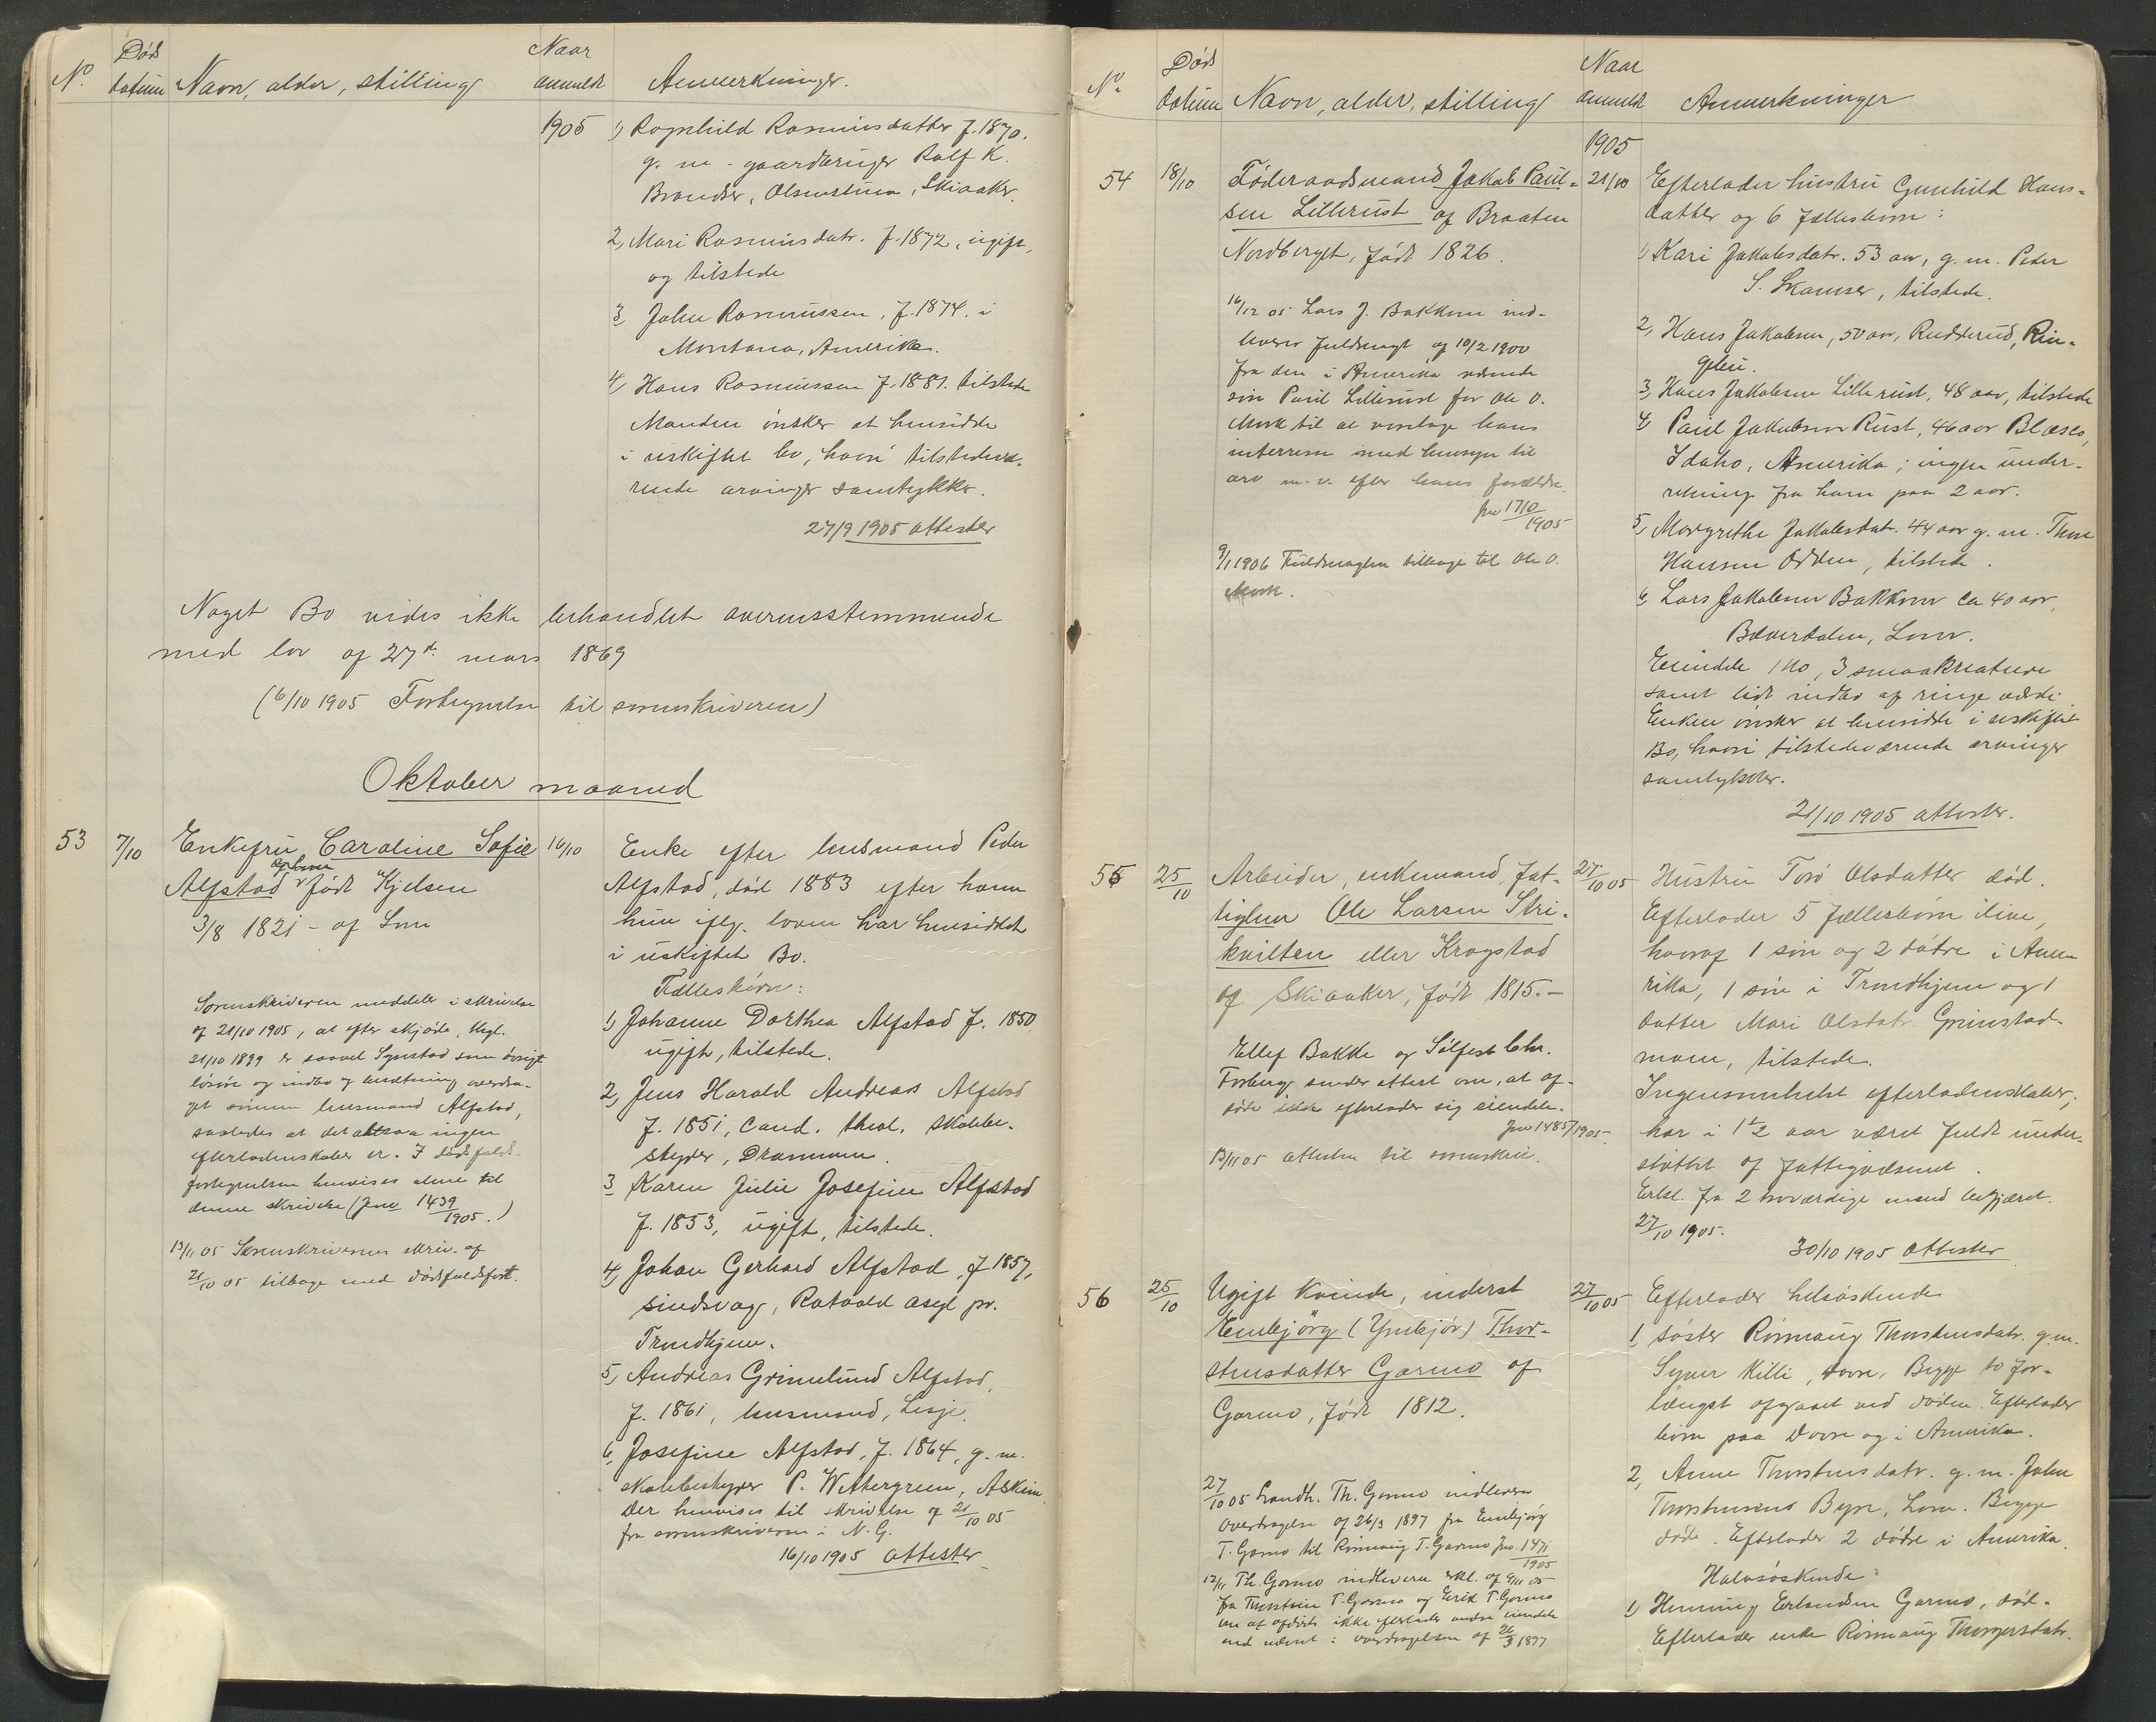 No. Døds datum Navn, alder, stilling Naar anmeldt Anmerkninger.
1905 1) Ragnhild Rasmusdatter f. 1870.
g. m. gaardbruger Rolf K.
Brandser, Olsmstuen, Skiaaker.
2, Mari Rasmusdatr. f. 1872, ugift,
og tilstede
3, John Rasmussen, f. 1874. i
Montana, Amerika.
4, Hans Rasmussen f. 1881. tilstede
Manden ønsker at hensidde
i uskiftet bo, hvori tilstedevæ-
rende arvinger samtykker.
27/9 1905 attester
Noget Bo vides ikke behandlet overensstemmende
med lov af 27de mars 1869
(6/10 1905 Fortegnelse til sorenskriveren)
Oktober maaned
53 7/10 Enkefru Caroline Sofie 16/10
Alfstad født Kjelsen
3/8 1821 - af Lom
Sorenskriveren meddeler i skrivelse
af 21/10 1905, at efter skjøde, thgl.
21/10 1899 er saavel Synstad som øvrigt
løsøre og indbo og besætning overdra-
get sønnen husmand Alfstad,
saaledes at det altsaa ingen
efterladenskaber er. I dødsfalds-
fortegnelsen henvises alene til
denne skrivelse (Jno 1439/1905.)
13/11 05 Sorenskriverens skriv. af
21/10 05 tilbage med dødsfaldsfort.
Enke efter husmand Peder
Alfstad, død 1883 efter hvem
hun iflg. loven har hensiddet
i uskiftet Bo.
Fællesbørn:
1, Johanne Dorthea Alfstad f. 1850
ugift, tilstede.
2, Jens Harald Andreas Alfstad
f. 1851, cand. theol. skolebe-
styrer, Drammen.
3, Karen Julie Josefine Alfstad
f. 1853, ugift, tilstede.
4, Johan Gerhard Alfstad, f 1857,
sindsvag, Rotvold asyl pr.
Trondhjem.
5, Andreas Grimelund Alfstad,
f. 1861, husmand, Lesje.
6, Josefine Alfstad, f. 1864, g. m.
skolebestyrer P. Wettergreen, Askim
Der henvises til skrivelse af 21/10 05
fra sorenskriveren i N. G.
16/10 1905 attester
No. Døds datum Navn, alder, stilling Naar anmeldt Anmerkninger
1905
54 18/10 Føderaadsmand Jakob Paul- 21/10
sen Lillerust af Braaten
Nordberget, født 1826.
16/12 05 Lars J. Bakkom ind-
leverer fuldmagt af 10/2 1900
fra den i Amerika værende
søn Paul Lillerust for Ole O.
Mork til at varetage hans
interesser med hensyn til
arv m. v. efter hans forældre.
jno 1710/1905
9/1 1906 Fuldmagten tilbage til Ole O.
Mork.
Efterlader hustru Gunhild Hans-
datter og 6 fællesbørn:
1, Kari Jakobsdatr. 53 aar, g. m. Peder
S. Skamser, tilstede.
2, Hans Jakobsen, 50 aar, Rudderud, Rin-
gebu.
3, Hans Jakobsen Lillerust, 48 aar, tilstede
4, Paul Jakobsen Rust, 46 aar
Idaho, Amerika; ingen under-
retning fra ham paa 2 aar.
5, Margrethe Jakobsdatr. 44 aar g. m. Thore
Hansen Odden, tilstede.
6, Lars Jakobsen Bakkom ca 40 aar,
Bæverdalen, Lom.
Eiendele 1 ko, 3 smaakreature
samt lidt indbo af ringe værdi.
Enken ønsker at hensidde i uskiftet
Bo, hvori tilstedeværende arvinger
samtykker.
21/10 1905 attester.
55 25/10 Arbeider, enkemand, fat- 27/10 05
tiglem Ole Larsen Stri-
kvilten eller Krogstad
af Skiaaker, født 1815.-
Ellef Bakke og Sølfest Chr.
Forberg sender attest om, at af-
døde ikke efterlader sig eiendele.
jno 1485/1905.
13/11 05 attesten til sorenskriv.
Hustru Toro Olsdatter død.
Efterlader 5 fællesbørn ilive,
hvoraf 1 søn og 2 døtre i Ame-
rika, 1 søn i Trondhjem og 1
datter Mari Olsdatr. Grimstad-
moen, tilstede.
Ingensomhelst efterladenskaber;
har i 1 1/2 aar været fuldt under-
støttet af fattigvæsenet.
Erkl. fra 2 troværdige mænd begjæret.
27/10 1905.
30/10 1905 attester
56 25/10 Ugift kvinde, inderst 27/10 05
Embjörg (Ymbjör) Thor-
stensdatter Garmo af
Garmo, født 1812.
27/10 05 Landh. Th. Garmo indleverer
overdragelse af 26/3 1897 fra Embjörg
T. Garmo til Rønnaug T. Garmo jno. 1471/1905
12/11 Th. Garmo indleverer erkl. af 9/11 05
fra Thorstein T. Garmo og Erik T. Garmo
om at afdøde ikke efterlader andre eiendele
end nævnt i overdragelsen af 26/3 1897
Efterlader helsøskende
1, søster Rønnaug Thorstensdatr. g. m.
Syver Killi, Dovre, Begge to for-
længst afgaaet ved døden. Efterlader
børn paa Dovre og i Amerika.
2, Anne Thorstensdatr. g. m. John
Thorstensens Byre, Lom. Begge
døde. Efterlader 2 døtre i Amerika.
Halvsøskende:
1, Henning Erlandsen Garmo, død.
Efterlader enke Rønnaug Thorgersdatr.